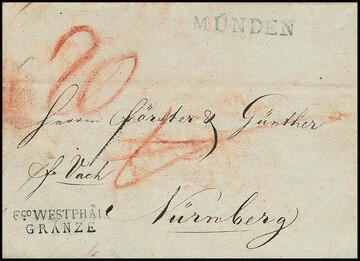 MÜNDEN
20
Herrn Förster & Günther
fr Vach
Nürnberg
FCO WESTPHÄL
GRÄNZE